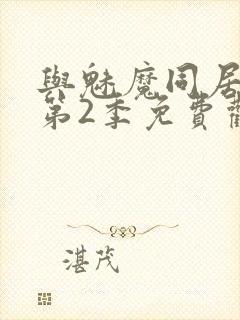 與魅魔同居
第2季免費
湛茂